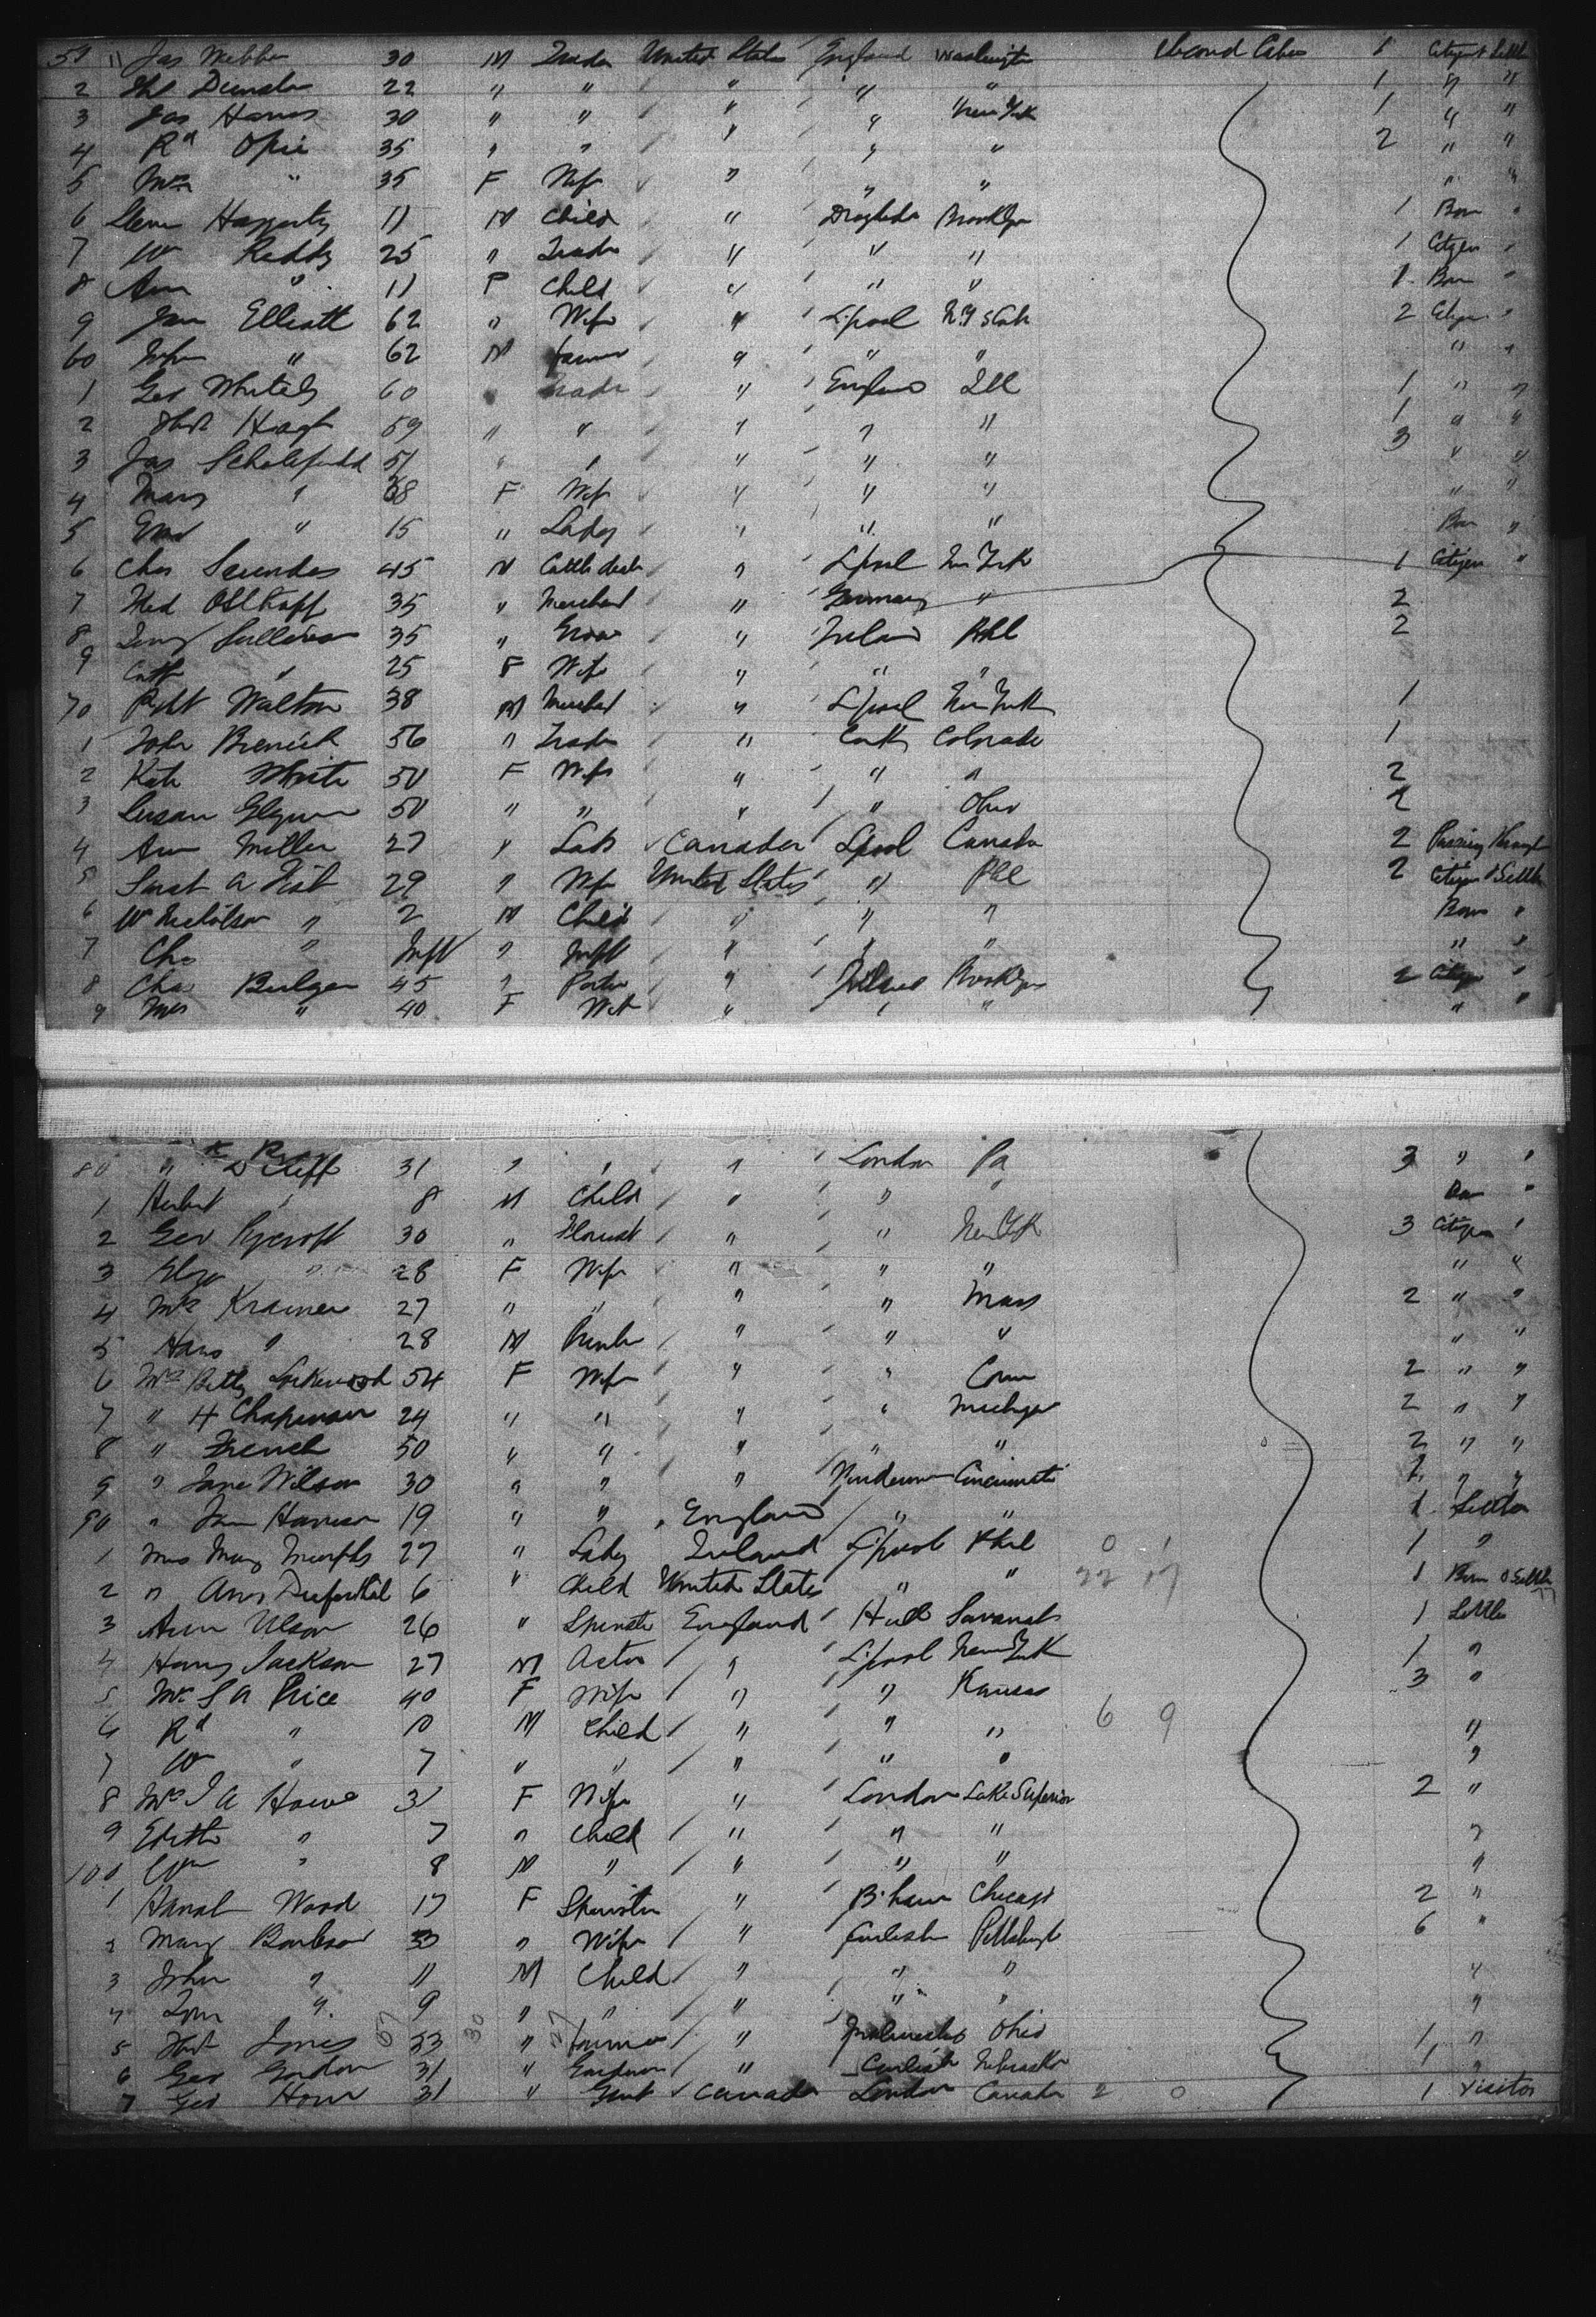 Jas Webber 30 M Trader United States England Washington Second Cabin 1 Citizen & Settler
2 22 " " " " " 1 " "
3 Jas 30 " " " " New York 1 " "
4 Rd Opie 35 " " " " " 2 " "
5 Mrs " 35 F Wife " " " " "
6 Haggerty 11 M Child " Drogheda Brooklyn 1 Born "
7 Wm Reddy 25 " Trader " " " 1 Citizen "
8 Ann " 11 F Child " " " 1 Born "
9 Jane Elliott 62 " Wife " L'pool N.Y State 2 Citizen "
60 John " 62 M Farmer " " " " "
1 Geo Whitely 60 Trader " England Ill 1 " "
2 59 " " " " " 1 " "
3 Jas Scholefield 51 " " " " " 3 " "
4 Mary " 38 F Wife " " " " "
5 " 15 " Lady " " " Born "
6 Chas Saunders 45 M Cattle dealer " L'pool New York 1 Citizen "
7 35 " Merchant " Germany " 2
8 Sullivan 35 " Grocer " Ireland Phil 2
9 Cath " 25 F Wife " " "
70 Robt Walton 38 M Merchant " L'pool New York 1
1 John 56 " Trader " Cork Colorado 1
2 Kate White 50 F Wife " " " 2
3 Susan Glynn 50 " " " " Ohio 2
4 Ann Miller 27 " Lady Canada L'pool Canada 2 Passing through
5 Sarah A Fish 29 " Wife United States " Phil 2 Citizen & Settler
6 Wm Nicholson " 2 M Child " " " Born "
7 Chs " Inft " Inft " " " " "
8 Chas Bulger 45 " Porter " Ireland Brooklyn 2 Citizen "
9 Mrs " 40 F Wife " " " " "
80 " Cliff 31 " " " London Pa 3 " "
1 Herbert " 8 M Child " " " Born "
2 Geo Rycroft 30 " Florist " " New York 3 Citizen "
3 Eliza " 28 F Wife " " " " "
4 Mrs Kramer 27 " " " " Mass 2 " "
5 Hans " 28 M " " " " "
6 Mrs Betty Lockwood 54 F Wife " " Conn 2 " "
7 " H Chapman 24 " " " " Michigan 2 " "
8 " French 50 " " " " " 2 " "
9 " Jane Wilson 30 " " " Cincinnati " "
90 " Jane Harrison 19 " " England " " 1 Settler
1 Mrs Mary Murphy 27 " Lady Ireland L'pool Phil 0 1 1 "
2 " Ann 6 " Child United States " " 22 17 1 Born & Settler
3 Ann 26 " Spinster England Hull Savanah 1 Settler
4 Harry Jackson 27 M Actor " L'pool New York 1 "
5 Mrs S A Price 40 F Wife " " Kansas 3 "
6 Rd " 10 M Child " " " 6 9 "
7 Wm " 7 " " " " " "
8 Mrs J A Howe 31 F Wife " London Lake Superior 2 "
9 Edith " 7 " Child " " " "
100 Wm " 8 M " " " " "
1 Hanah Wood 17 F Spinster " B'ham Chicago 2 "
2 Mary 33 " Wife " Carlisle Pittsburgh 6 "
3 John " 11 M Child " " " "
4 Tom " 9 " " " " " "
5 Jones 33 " Farmer " Ohio 1 "
6 Geo Gordon 31 " " Carlisle Nebraska 1 "
7 Geo Horn 31 " Gent Canada London Canada 2 0 1 Visitor